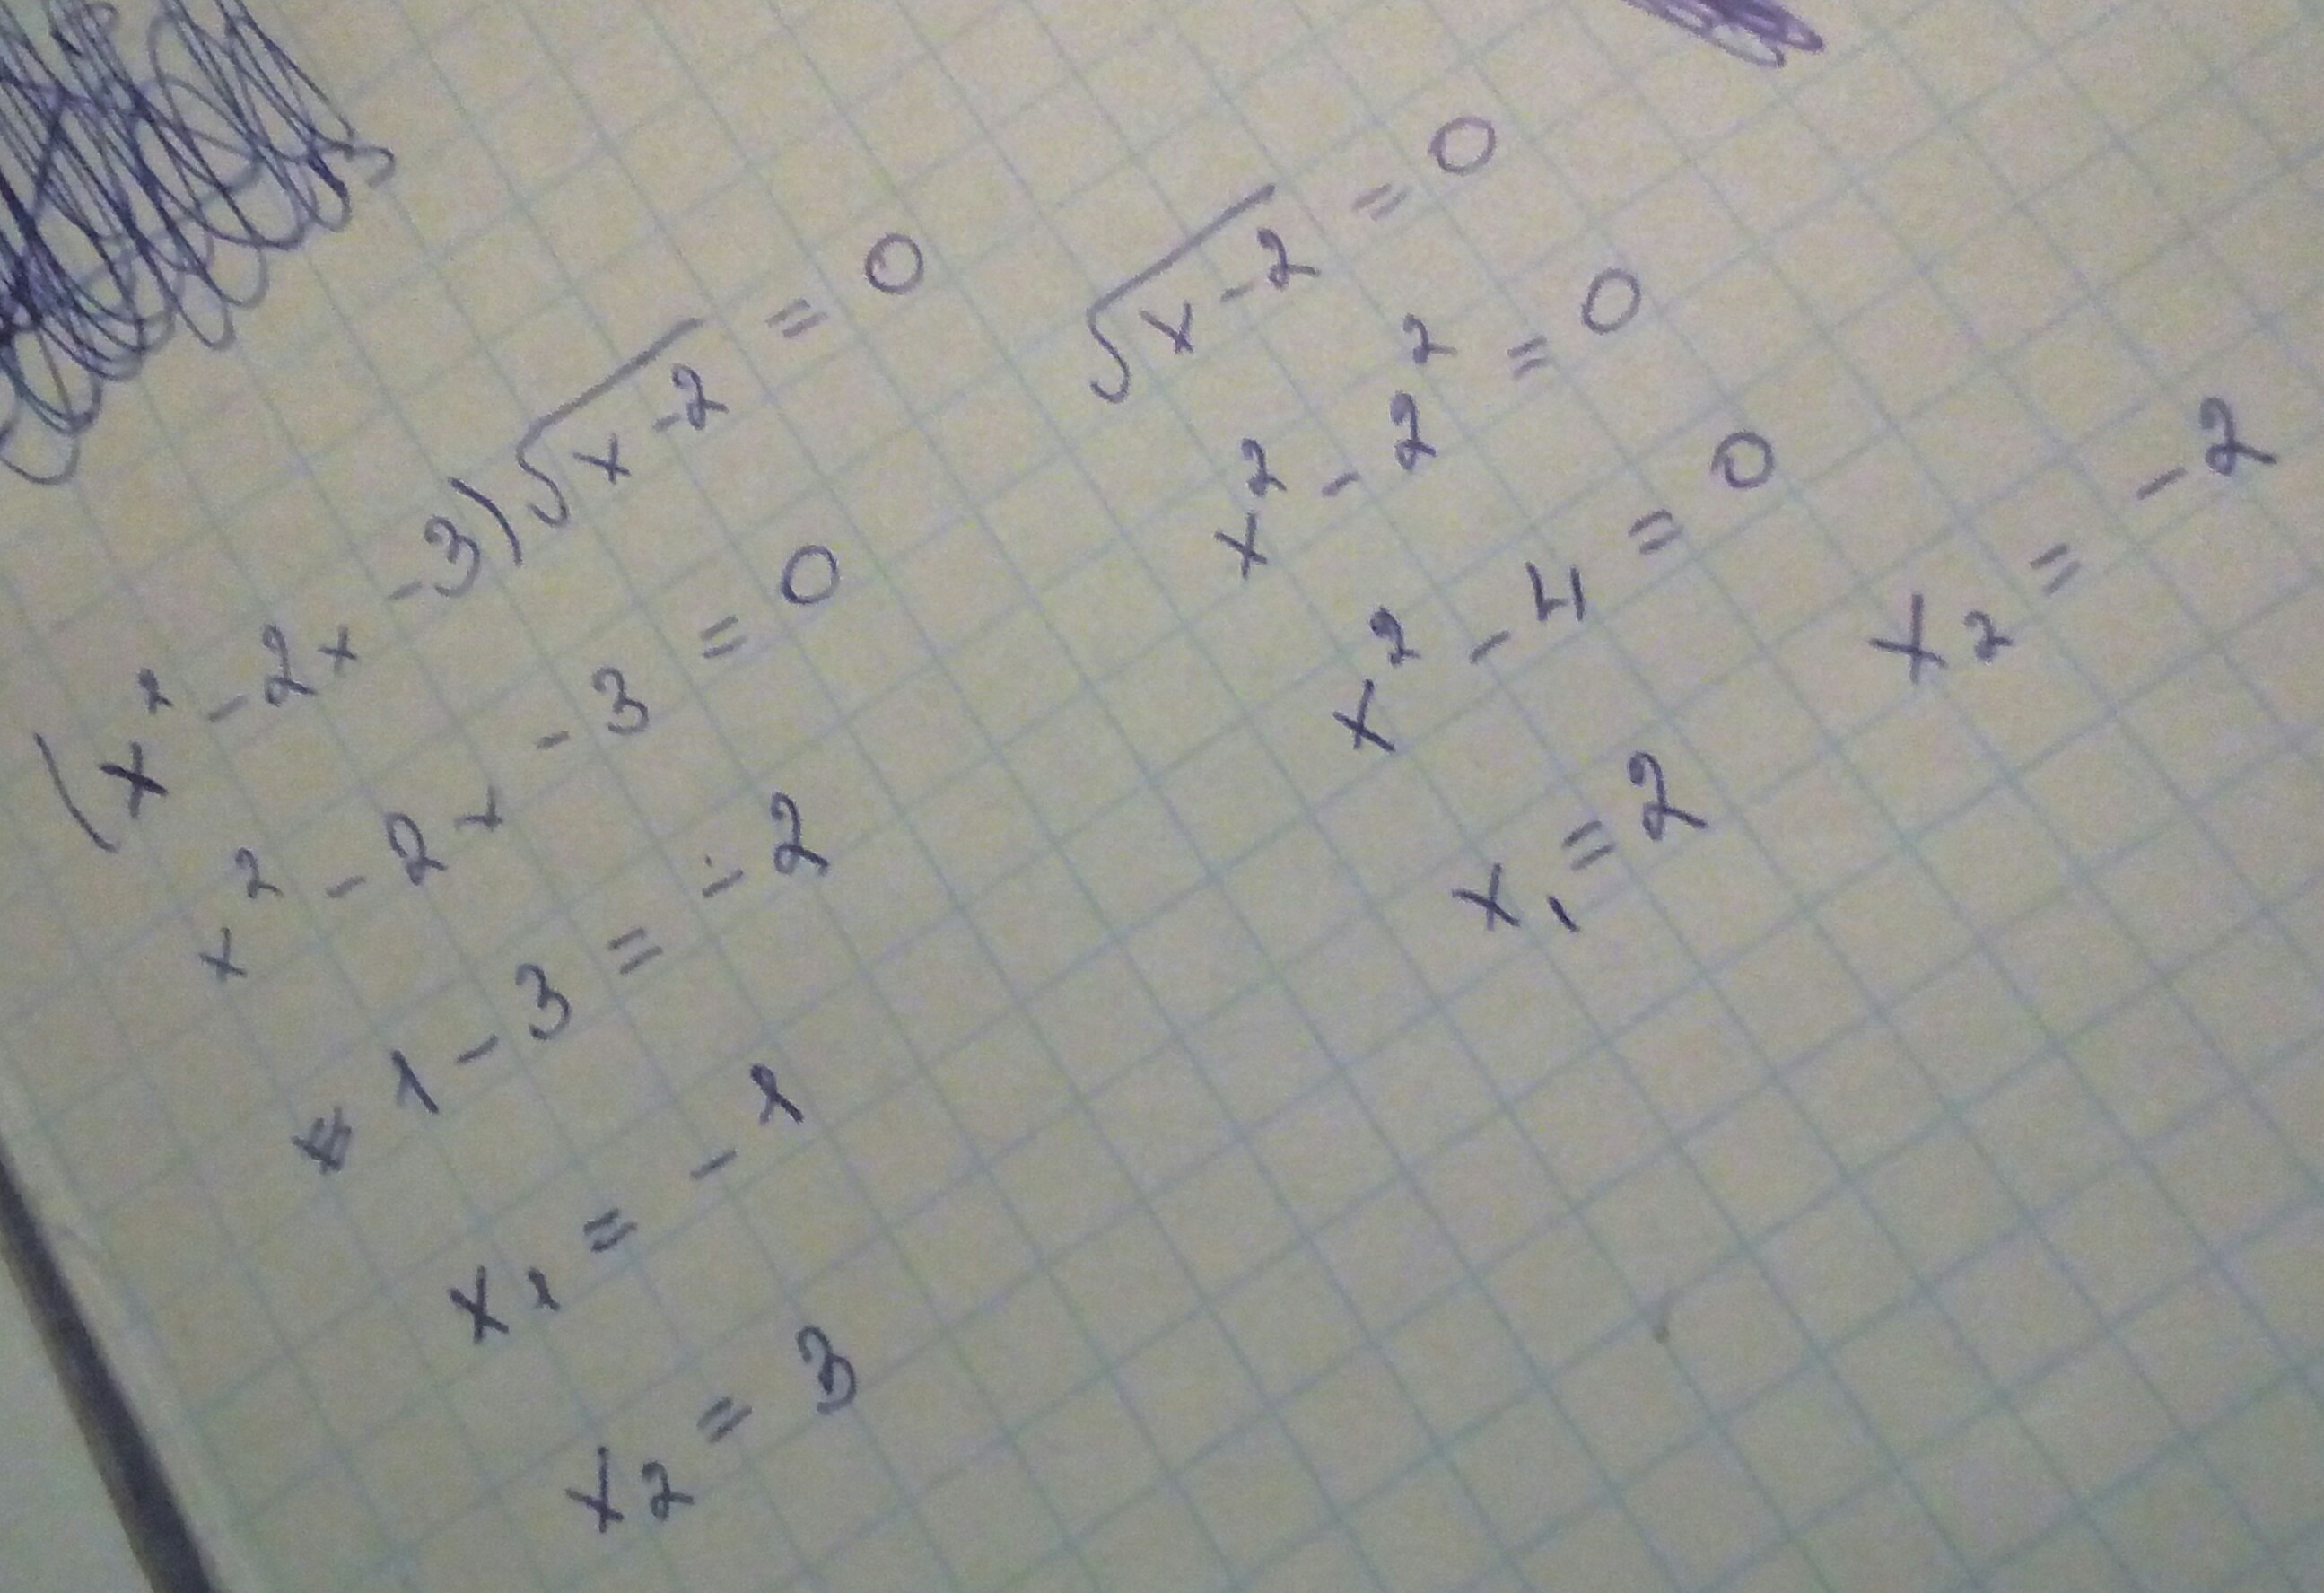 (x² - 2x - 3)√x - 2 = 0
x² - 2x - 3 = 0
1 - 3 = - 2
x₁ = - 1
x₂ = 3
√x - 2 = 0
x² - 2² = 0
x² - 4 = 0
x₁ = 2 x₂ = - 2